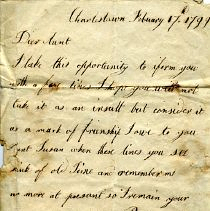 Charlestown Febuary 17th 179
Dier Aunt
I take this opportunity to iform you
with a few lines I hope you will not
take it as an insult but consider it
as a mark of frienship I owe to you
Aunt Susan when these lines you see
think of old time and remember me
no more at present so I remain your